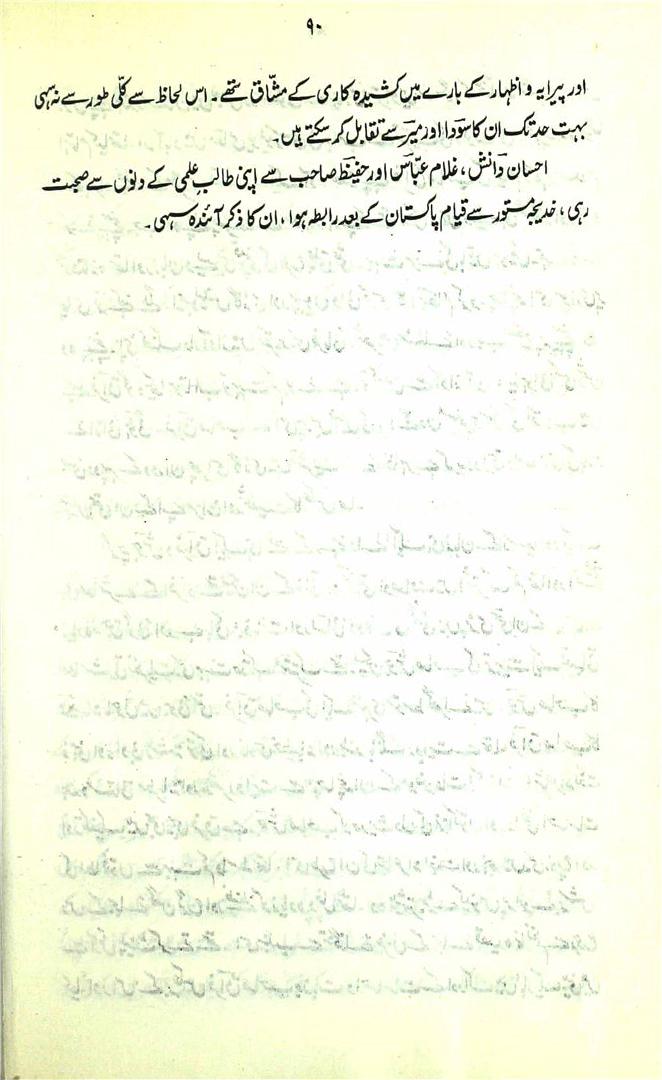 ۹۰
اور پیرایہ و اظہار کے بارے میں کشیدہ کاری کے مشّاق تھے۔ اس لحاظ سے کلّی طور سے نہ سہی
بہت حد تک ان کا سوؔدا اور میرؔ سے تقابل کر سکتے ہیں۔
احسان دانشؔ، غلام عبّاسؔ اور حفیظؔ صاحب سے اپنی طالب علمی کے دنوں سے صحبت
رہی، خدیجہ مستور سے قیام پاکستان کے بعد رابطہ ہوا، ان کا ذکر آئندہ سہی۔